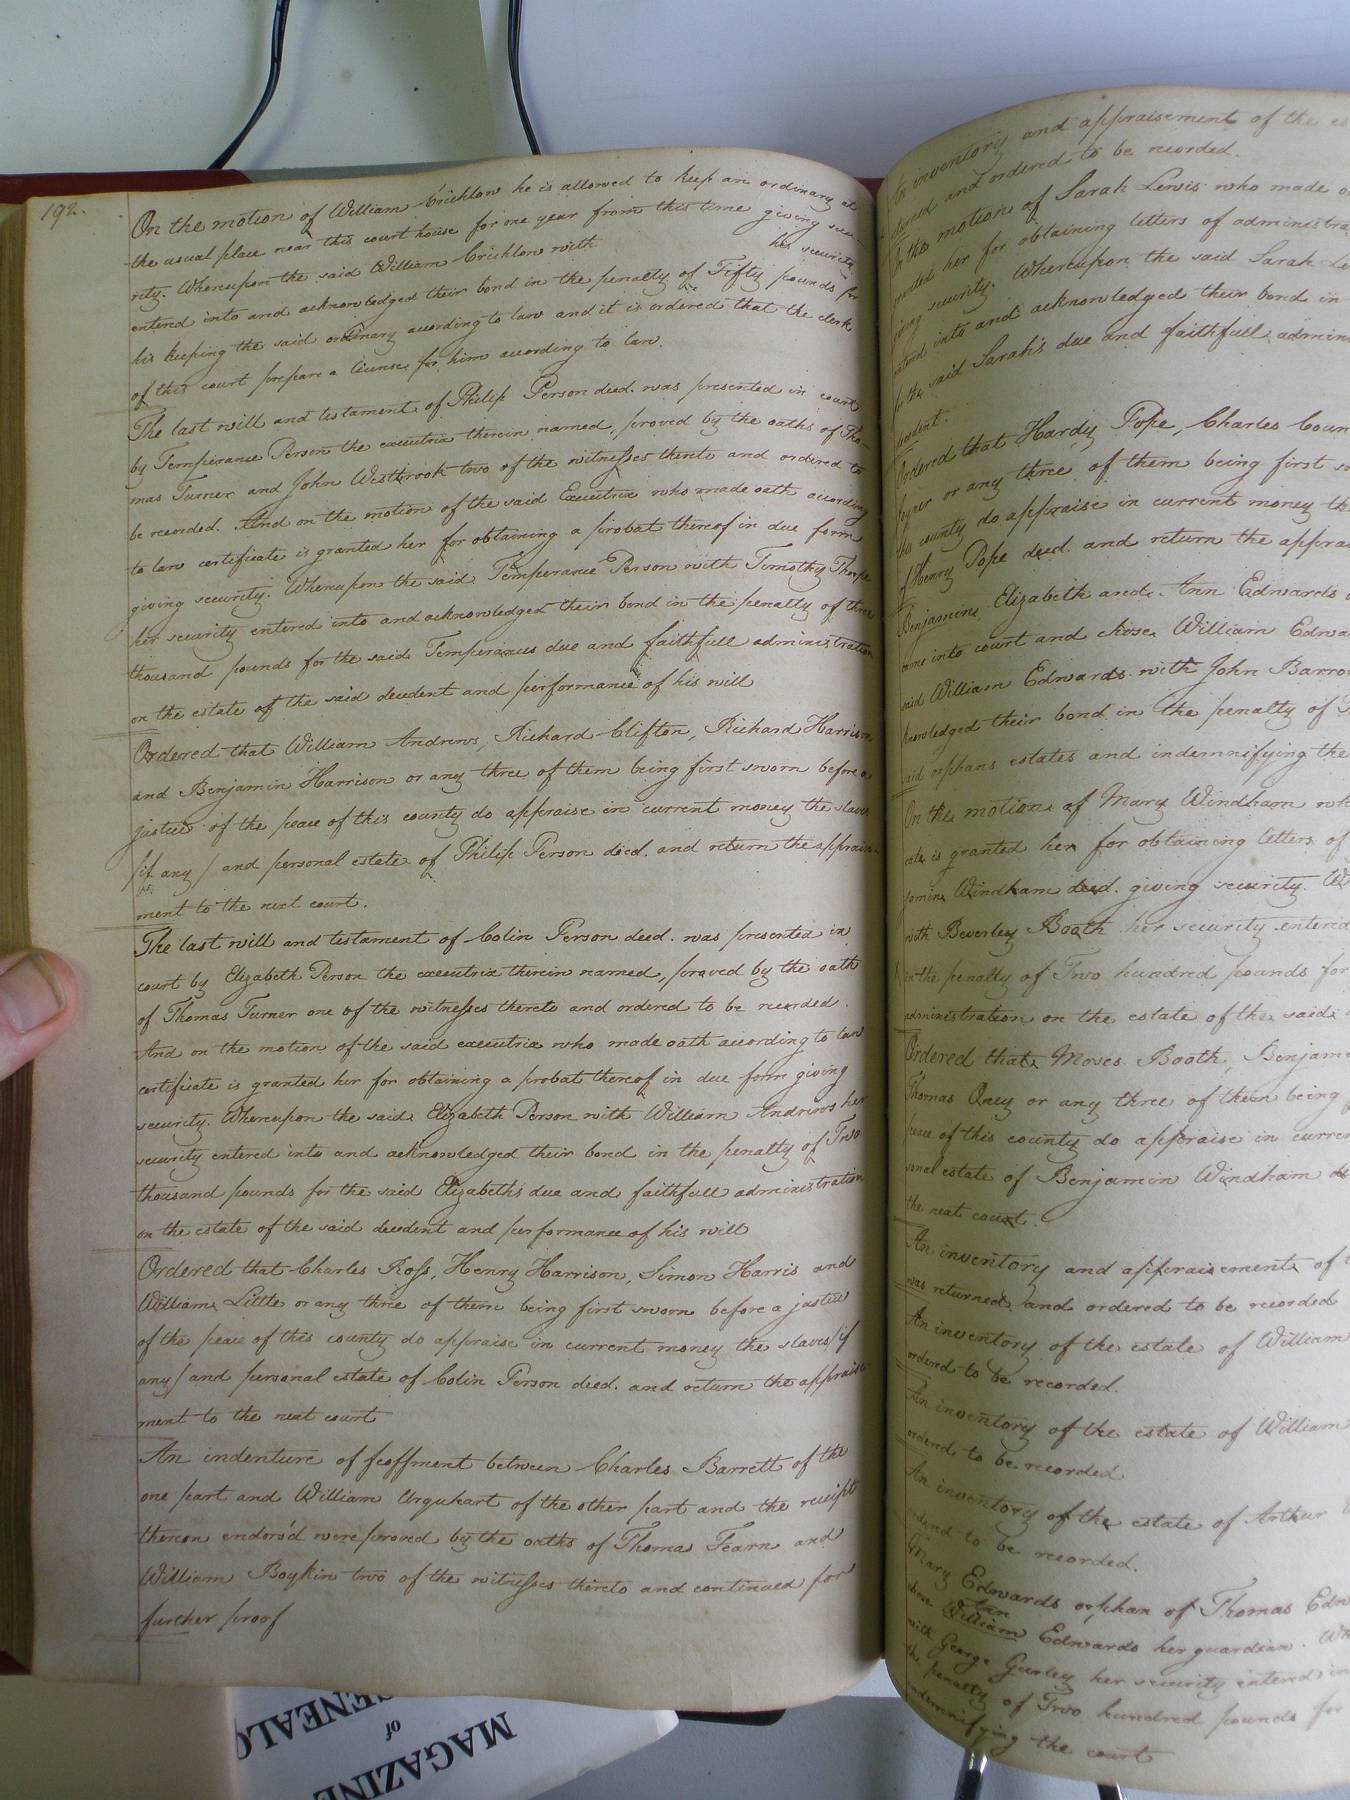 192.
On the motion of William Cricklow he is allowed to keep an ordinary at
the usual place near this court house for one year from this time giving secu-
rity. Whereupon the said William Cricklow with his security
entered into and acknowledged their bond in the penalty of Fifty pounds for
his keeping the said ordinary according to law and it is ordered that the clerk
of this court prepare a license for him according to law.
The last will and testament of Philip Person decd. was presented in court
by Temperance Person the executrix therein named, proved by the oaths of Tho-
mas Turner and John Westbrook two of the witnesses thereto and ordered to
be recorded. And on the motion of the said Executrix who made oath according
to law certificate is granted her for obtaining a probat thereof in due form
giving security. Whereupon the said Temperance Person with Timothy Thorpe
her security entered into and acknowledged their bond in the penalty of three
thousand pounds for the said Temperances due and faithfull administration
on the estate of the said decedent and performance of his will
Ordered that William Andrews, Richard Clifton, Richard Harrison,
and Benjamin Harrison or any three of them being first sworn before a
justice of the peace of this county do appraise in current money the slaves
(if any) and personal estate of Philip Person decd. and return the appraise-
ment to the next court.
The last will and testament of Colin Person decd. was presented in
court by Elizabeth Person the executrix therein named, proved by the oath
of Thomas Turner one of the witnesses thereto and ordered to be recorded.
And on the motion of the said executrix who made oath according to law
certificate is granted her for obtaining a probat thereof in due form giving
security. Whereupon the said Elizabeth Person with William Andrews her
security entered into and acknowledged their bond in the penalty of Two
thousand pounds for the said Elizabeth's due and faithfull administration
on the estate of the said decedent and performance of his will
Ordered that Charles Ross, Henry Harrison, Simon Harris and
William Little or any three of them being first sworn before a justice
of the peace of this county do appraise in current money the slaves (if
any) and personal estate of Colin Person decd. and return the appraise-
ment to the next court
An indenture of feoffment between Charles Barrett of the
one part and William Urquhart of the other part and the receipt
thereon endors'd were proved by the oaths of Thomas Fearn and
William Boykin two of the witnesses thereto and continued for
further proof
An inventory and appraisement of the
and ordered to be recorded.
On the motion of Sarah Lewis who made
granted her for obtaining letters of administra
giving security. Whereupon the said Sarah Le
entered into and acknowledged their bond in
for the said Sarah's due and faithfull admin
decedent.
Ordered that Hardy Pope, Charles Coun
or any three of them being first
this county do appraise in current money
of Henry Pope decd. and return the apprai
Benjamin, Elizabeth and Ann Edwards
came into court and chose William Edwa
said William Edwards with John Barro
knowledged their bond in the penalty of
said orphans estates and indemnifying the
On the motion of Mary Windham
cate is granted her for obtaining letters of
jamin Windham decd. giving security.
with Beverley Booth her security entered
in the penalty of Two hundred pounds for
administration on the estate of the said
Ordered that Moses Booth, Benjam
Thomas Oney or any three of them being
peace of this county do appraise in curren
sonal estate of Benjamin Windham
the next court.
An inventory and appraisement of
was returned and ordered to be recorded
An inventory of the estate of William
ordered to be recorded.
An inventory of the estate of William
ordered to be recorded
An inventory of the estate of Arthur
ordered to be recorded.
Mary Edwards orphan of Thomas Edw
chose Ann William Edwards her guardian.
with George Gurley her security entered in
the penalty of Two hundred pounds for
indemnifying the court
MAGAZINE
of
GENEALO